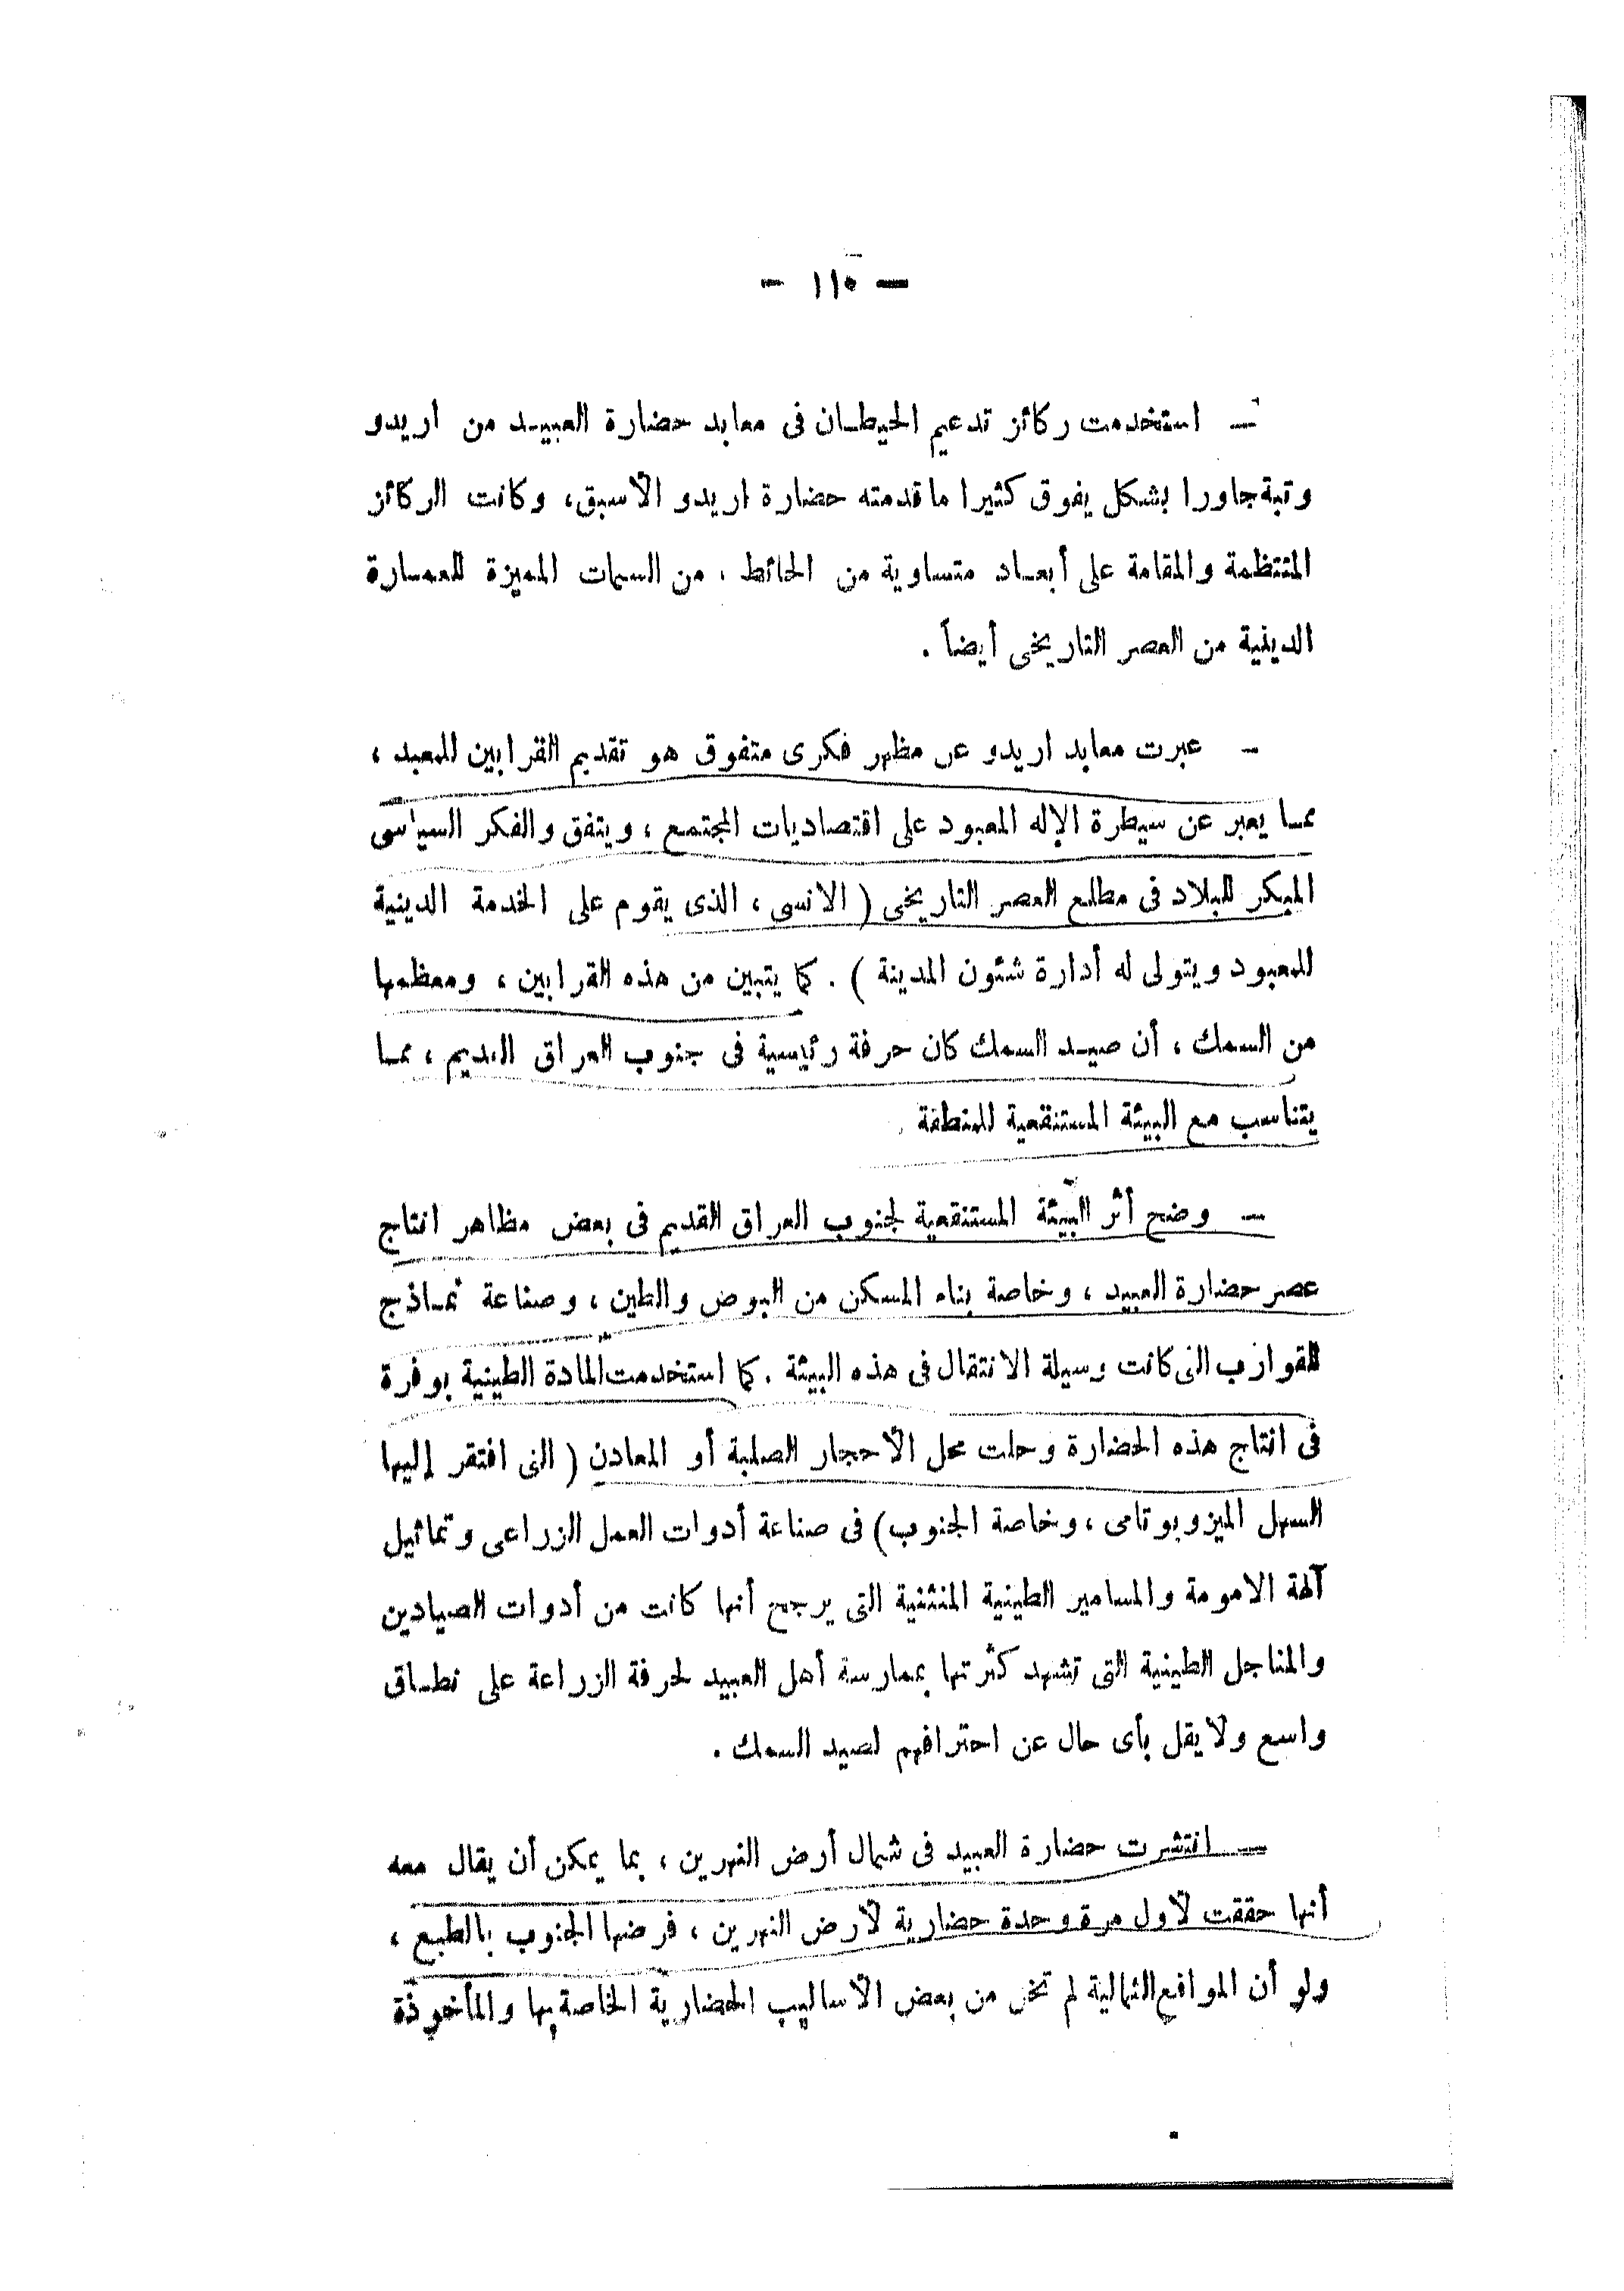 — ١١٥ —
— استخدمت ركائز تدعيم الحيطان فى معابد حضارة العبيد من اريدو
وتبة جاورا بشكل يفوق كثيرا ما قدمته حضارة اريدو الأسبق، وكانت الركائز
المنتظمة والمقامة على أبعاد متساوية من الحائط ، من السمات المميزة للعمارة
الدينية من العصر التاريخى أيضاً .
— عبرت معابد اريدو عن مظهر فكرى متفوق هو تقديم القرابين للمعبد ،
مما يعبر عن سيطرة الإله المعبود على اقتصاديات المجتمع ، ويتفق والفكر السياسى
المبكر للبلاد فى مطلع العصر التاريخى ( الانسى ، الذى يقوم على الخدمة الدينية
للمعبود ويتولى له أدارة شئون المدينة ) . كما يتبين من هذه القرابين ، ومعظمها
من السمك ، أن صيد السمك كان حرفة رئيسية فى جنوب العراق القديم ، مما
يتناسب مع البيئة المستنقعية للمنطقة .
— وضح أثر البيئة المستنقعية لجنوب العراق القديم فى بعض مظاهر انتاج
عصر حضارة العبيد ، وخاصة بناء المسكن من البوص والطين ، وصناعة نماذج
للقوارب التى كانت وسيلة الانتقال فى هذه البيئة . كما استخدمت المادة الطينية بوفرة
فى انتاج هذه الحضارة وحلت محل الأحجار الصلبة أو المعادن ( التى افتقر إليها
السهل الميزوبوتامى ، وخاصة الجنوب ) فى صناعة أدوات العمل الزراعى وتماثيل
آلهة الامومة والمسامير الطينية المنثنية التى يرجح أنها كانت من أدوات الصيادين
والمناجل الطينية التى تشهد كثرتها بممارسة أهل العبيد لحرفة الزراعة على نطاق
واسع ولا يقل بأى حال عن احترافهم لصيد السمك .
— انتشرت حضارة العبيد فى شمال أرض النهرين ، بما يمكن أن يقال معه
أنها حققت لأول مرة وحدة حضارية لأرض النهرين ، فرضها الجنوب بالطبع ،
ولو أن المواقع الشمالية لم تخل من بعض الأساليب الحضارية الخاصة بها والمأخوذة